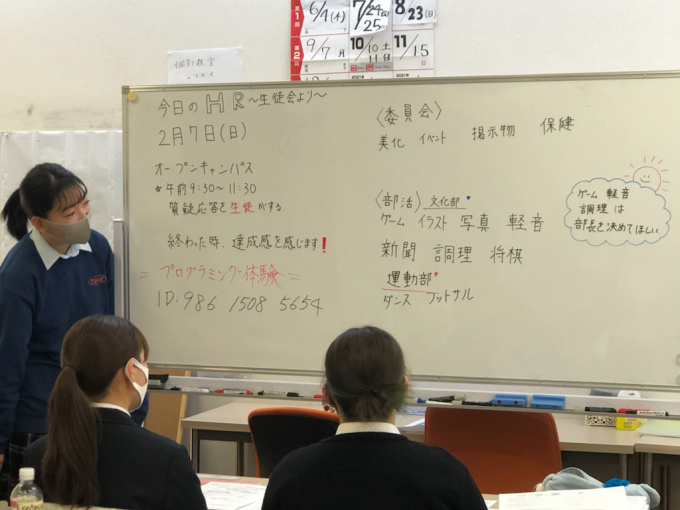 第1回
6/4(木)
7/24(金)
25
8/23(日)
第2回
9/7月
10/10土
11日
11/15
個別教室
今日のHR~生徒会より~
2月7日(日)
オープンキャンパス
*午前9:30~11:30
質疑応答を生徒がする
終わった時、達成感を感じます!
=プログラミング体験=
ID.986 1508 5654
〈委員会〉
美化 イベント 掲示物 保健
〈部活〉文化部*
ゲーム イラスト 写真 軽音
新聞 調理 将棋
運動部*
ダンス フットサル
ゲーム 軽音
調理 は
部長を決めてほしい